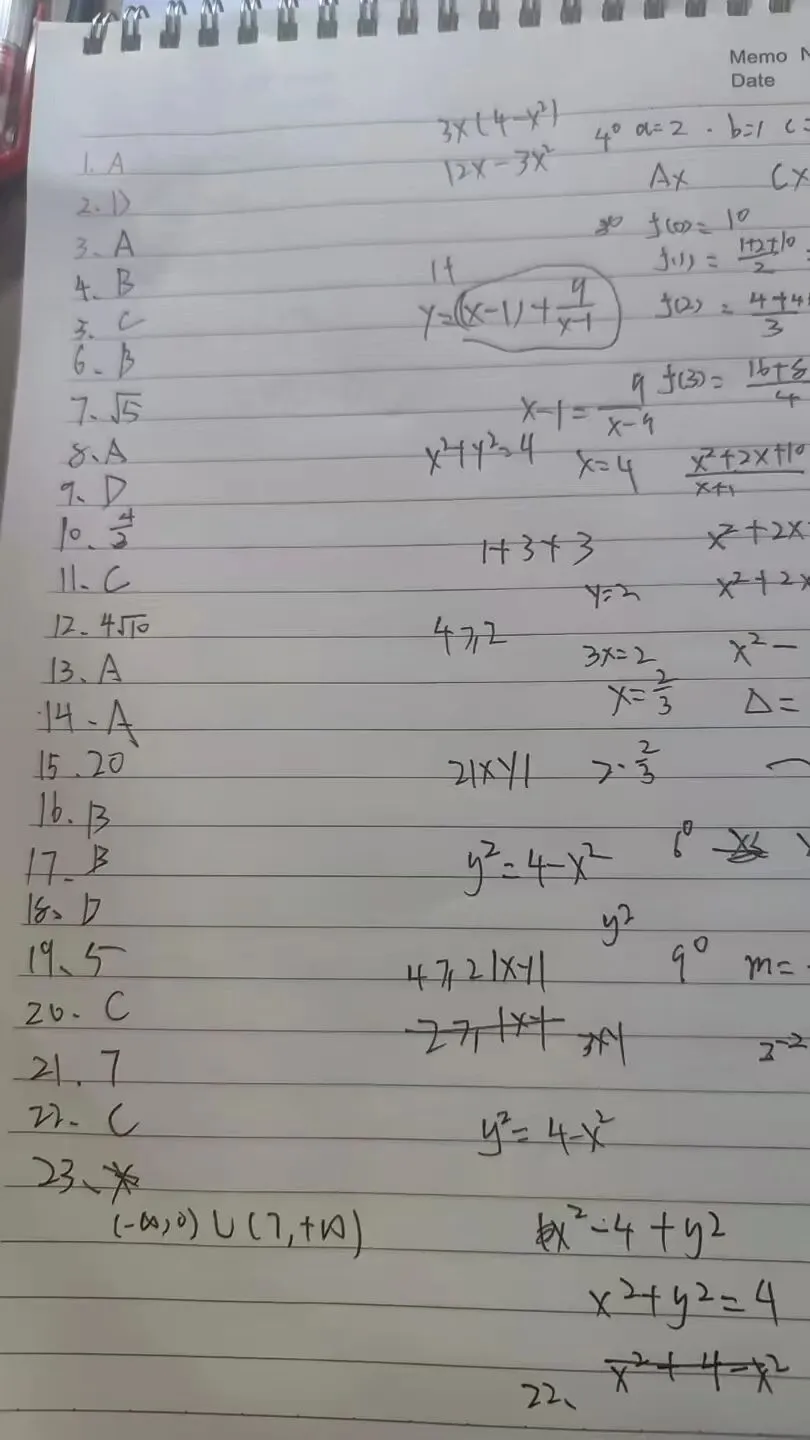 Memo N
Date
1. A
2. D
3. A
4. B
5. C
6. B
7. √5
8. A
9. D
10. 4/3
11. C
12. 4√10
13. A
14. A
15. 20
16. B
17. B
18. D
19. 5
20. C
21. 7
22. C
23.
(-∞,0)∪(7,+∞)
3x(4-x²)
12x-3x²
1+
y=(x-1)+9/(x-1)
x-1=9/(x-9)
x²+y²=4
x=4
1+3+3
y=2
4≥2
3x=2
x=2/3
2|xy|
2·2/3
y²=4-x²
y²
4≥2|xy|
2≥|xy|
3xy
y²=4-x²
x²-4+y²
x²+y²=4
x²+4-x²
22、
4° a=2 . b=1 c=
Ax Cx
f(0)=10
f(1)=(1+2+10)/2
f(2)=(4+4)/3
f(3)=(16+8)/4
(x²+2x+10)/(x+1)
x²+2x
x²+2x
x²-
Δ=
6°
9° m=
2-2